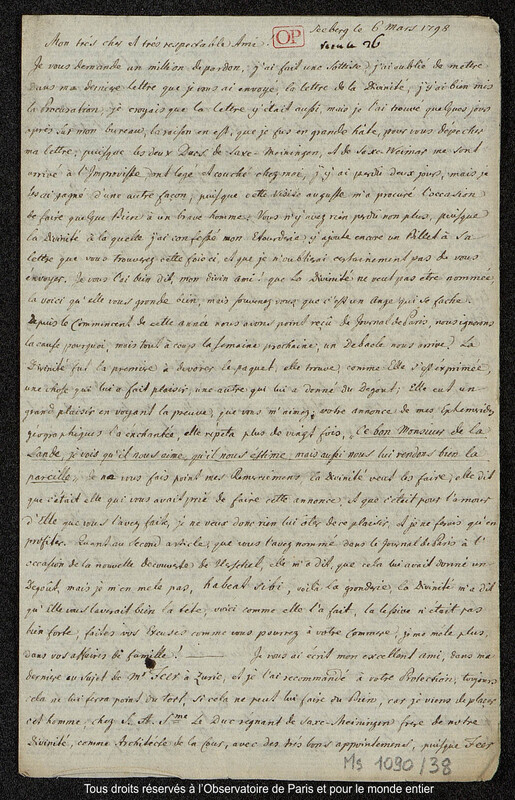 Seeberg le 6 Mars 1798
OP
Mon très cher et très respectable Ami.
Je vous demande un million de pardon, j'ai fait une Sottise, j'ai oublié de mettre
dans ma derniere lettre que je vous ai envoyé, la lettre de la Divinité, j'y ai bien mis
la Procuration, je croyais que la lettre y était aussi, mais je l'ai trouvé quelques jours
après sur mon bureau, la raison en est, que je fus en grande hâte, pour vous dépecher
ma lettre, puisque les deux Ducs de Saxe-Meiningen, et de Saxe-Weimar me sont
arrivé à l'Improviste ont logé et couché chez moi, j'y ai perdu deux jours, mais je
les ai gagné d'une autre façon, puisque cette visite auguste m'a procuré l'occasion
de faire quelque Bien à un brave homme. Vous n'y avez rien perdu non plus, puisque
la Divinité à la quelle j'ai confessé mon Etourderie, y ajoute encore un Billet à Sa
lettre que vous trouverez cette fois ici, et que je n'oublierai certainement pas de vous
envoyer. Je vous l'ai bien dit, mon divin ami! que la Divinité ne veut pas être nommée,
la voici qu'elle vous gronde bien, mais souvenez vous que c'est un Ange qui se fache.
Depuis le Commencement de cette année nous avons point reçu de Journal de Paris, nous ignorons
la cause pourquoi, mais tout à coup la Semaine prochaine, un Debacle nous arrive? La
Divinité fut la premiere à devorer le paquet, elle trouve, comme Elle s'est exprimée,
une chose qui lui a fait plaisir, une autre qui lui a donné du Degout; Elle eut un
grand plaisir en voyant la preuve, que vous m'aimez, votre annonce de mes Ephemerides
geographiques l'a enchantée, elle répéta plus de vingt fois, Ce bon Monsieur de la
Lande je vois qu'il nous aime, qu'il nous estime, mais aussi nous lui rendons bien la
pareille; je ne vous fais point mes Remercimens, la Divinité veut les faire, elle dit
que c'était elle qui vous avait prié de faire cette annonce, et que c'était pour l'amour
d'Elle que vous l'avez faite, je ne veux donc rien lui ôter de ce plaisir, et je ne ferais qu'en
profiter. Quant au second article, que vous l'avez nommé dans le Journal de Paris à l'
occasion de la nouvelle decouverte de Herschel, elle m'a dit, que cela lui avait donné un
Degoût, mais je m'en mele pas, habeat sibi, voilà la gronderie, la Divinité m'a dit
qu'Elle vous laverait bien la tete, voici comme elle l'a fait, la lessive n'était pas
bien forte, faites vos Excuses comme vous pourrez à votre Commere; je me mele plus,
dans vos affaires de famille! — Je vous ai écrit mon excellent ami, dans ma
derniere au sujet de Mr Feer à Zuric, et je l'ai recommandé à votre Protection; toujours
cela ne lui fera point du tort, si cela ne peut lui faire du Bien, car je viens de placer
cet homme, chez S. A. S.me Le Duc regnant de Saxe-Meiningen frere de notre
Divinité, comme Architecte de la Cour, avec des très bons appointemens, puisque Feer
Ms 1090/38
Tous droits réservés à l'Observatoire de Paris et pour le monde entier